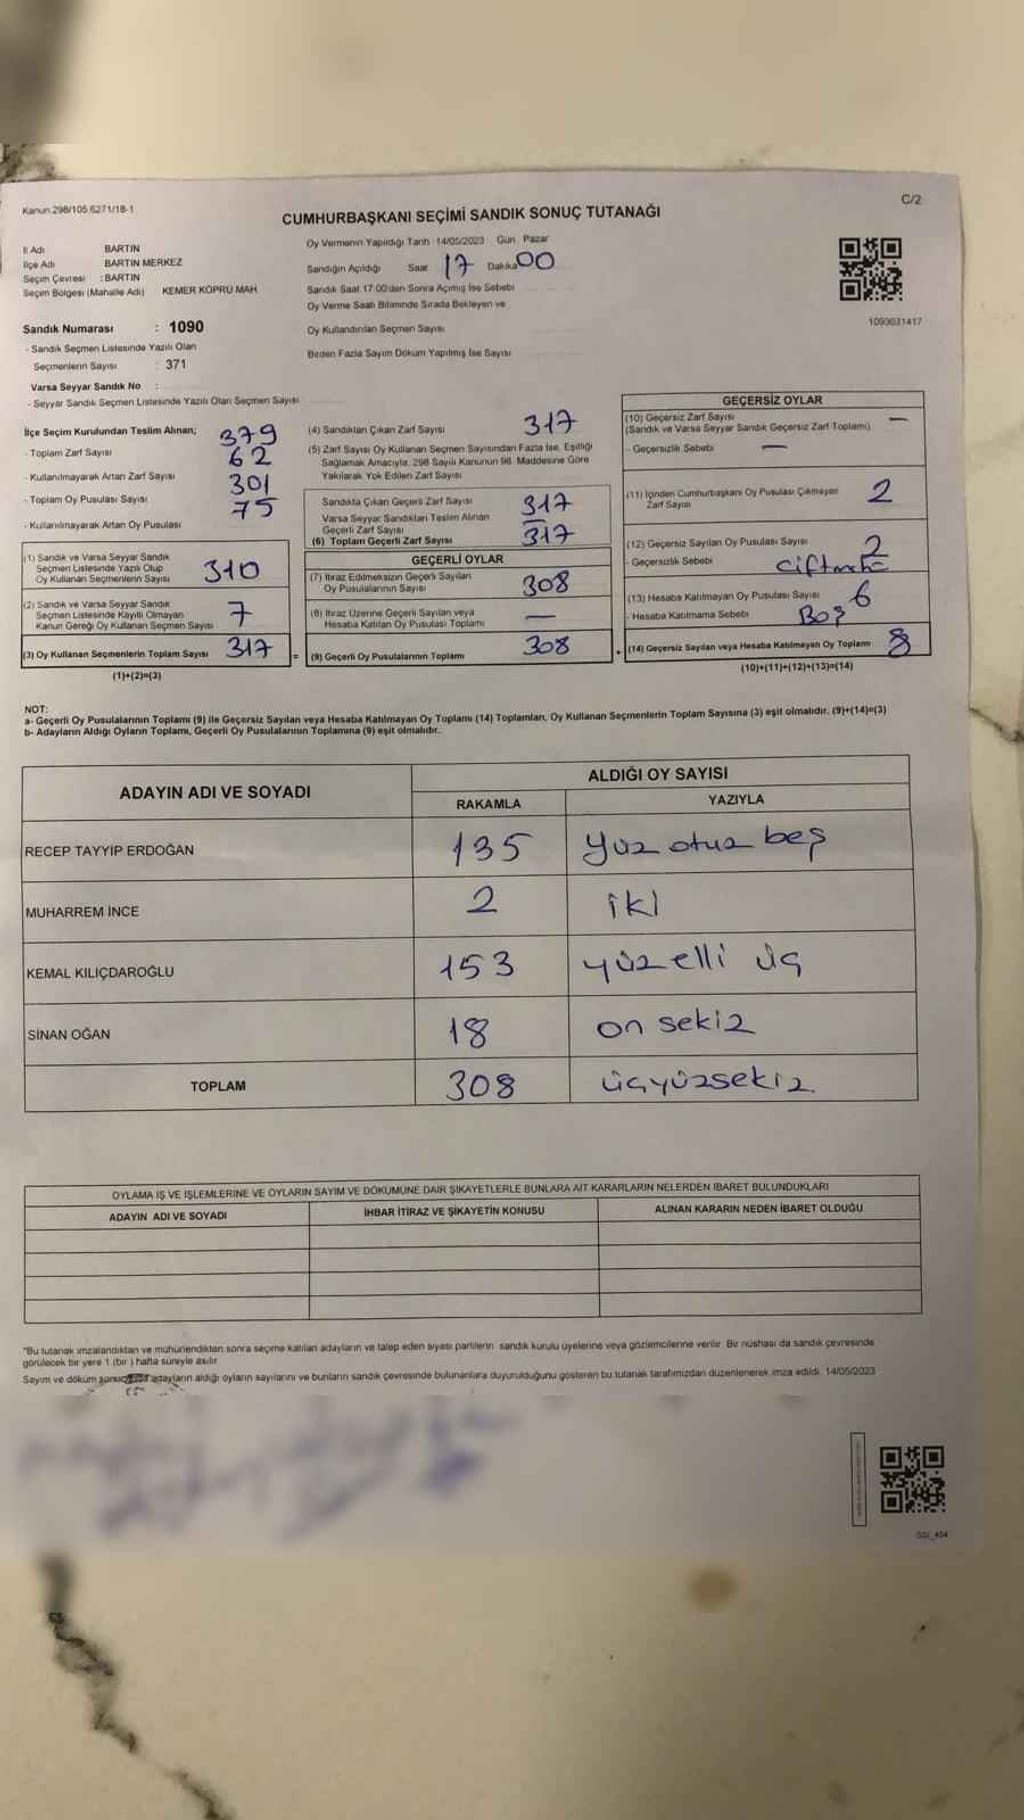 Kanun.298/105.6271/18-1
C/2
CUMHURBAŞKANI SEÇİMİ SANDIK SONUÇ TUTANAĞI
İl Adı BARTIN
İlçe Adı BARTIN MERKEZ
Seçim Çevresi : BARTIN
Seçim Bölgesi (Mahalle Adı) KEMER KÖPRÜ MAH.
Sandık Numarası : 1090
- Sandık Seçmen Listesinde Yazılı Olan
Seçmenlerin Sayısı : 371
Varsa Seyyar Sandık No :
- Seyyar Sandık Seçmen Listesinde Yazılı Olan Seçmen Sayısı
Oy Vermenin Yapıldığı Tarih 14/05/2023 Gün Pazar
Sandığın Açıldığı Saat 17 Dakika 00
Sandık Saat 17:00'den Sonra Açılmış İse Sebebi
Oy Verme Saati Bitiminde Sırada Bekleyen ve
Oy Kullandırılan Seçmen Sayısı
Birden Fazla Sayım Döküm Yapılmış İse Sayısı
1090031417
İlçe Seçim Kurulundan Teslim Alınan;
- Toplam Zarf Sayısı 379
- Kullanılmayarak Artan Zarf Sayısı 62
- Toplam Oy Pusulası Sayısı 301
- Kullanılmayarak Artan Oy Pusulası 75
(1) Sandık ve Varsa Seyyar Sandık
Seçmen Listesinde Yazılı Olup
Oy Kullanan Seçmenlerin Sayısı 310
(2) Sandık ve Varsa Seyyar Sandık
Seçmen Listesinde Kayıtlı Olmayan
Kanun Gereği Oy Kullanan Seçmen Sayısı 7
(3) Oy Kullanan Seçmenlerin Toplam Sayısı 317 =
(1)+(2)=(3)
(4) Sandıktan Çıkan Zarf Sayısı 317
(5) Zarf Sayısı Oy Kullanan Seçmen Sayısından Fazla İse, Eşitliği
Sağlamak Amacıyla, 298 Sayılı Kanunun 98. Maddesine Göre
Yakılarak Yok Edilen Zarf Sayısı
Sandıkta Çıkan Geçerli Zarf Sayısı 317
Varsa Seyyar Sandıktan Teslim Alınan
Geçerli Zarf Sayısı —
(6) Toplam Geçerli Zarf Sayısı 317
GEÇERLİ OYLAR
(7) İtiraz Edilmeksizin Geçerli Sayılan
Oy Pusulalarının Sayısı 308
(8) İtiraz Üzerine Geçerli Sayılan veya
Hesaba Katılan Oy Pusulası Toplamı —
(9) Geçerli Oy Pusulalarının Toplamı 308
GEÇERSİZ OYLAR
(10) Geçersiz Zarf Sayısı —
(Sandık ve Varsa Seyyar Sandık Geçersiz Zarf Toplamı)
- Geçersizlik Sebebi —
(11) İçinden Cumhurbaşkanı Oy Pusulası Çıkmayan
Zarf Sayısı 2
(12) Geçersiz Sayılan Oy Pusulası Sayısı 2
- Geçersizlik Sebebi
(13) Hesaba Katılmayan Oy Pusulası Sayısı 6
- Hesaba Katılmama Sebebi Boş
(14) Geçersiz Sayılan veya Hesaba Katılmayan Oy Toplamı 8
(10)+(11)+(12)+(13)=(14)
NOT:
a- Geçerli Oy Pusulalarının Toplamı (9) ile Geçersiz Sayılan veya Hesaba Katılmayan Oy Toplamı (14) Toplamları, Oy Kullanan Seçmenlerin Toplam Sayısına (3) eşit olmalıdır. (9)+(14)=(3)
b- Adayların Aldığı Oyların Toplamı, Geçerli Oy Pusulalarının Toplamına (9) eşit olmalıdır.
ADAYIN ADI VE SOYADI ALDIĞI OY SAYISI
RAKAMLA YAZIYLA
RECEP TAYYİP ERDOĞAN 135 yüz otuz beş
MUHARREM İNCE 2 iki
KEMAL KILIÇDAROĞLU 153 yüzelli üç
SİNAN OĞAN 18 on sekiz
TOPLAM 308 üçyüzsekiz
OYLAMA İŞ VE İŞLEMLERİNE VE OYLARIN SAYIM VE DÖKÜMÜNE DAİR ŞİKAYETLERLE BUNLARA AİT KARARLARIN NELERDEN İBARET BULUNDUKLARI
ADAYIN ADI VE SOYADI İHBAR İTİRAZ VE ŞİKAYETİN KONUSU ALINAN KARARIN NEDEN İBARET OLDUĞU
"Bu tutanak imzalandıktan ve mühürlendikten sonra seçime katılan adayların ve talep eden siyasi partilerin sandık kurulu üyelerine veya gözlemcilerine verilir. Bir nüshası da sandık çevresinde
görülecek bir yere 1 (bir) hafta süreyle asılır.
Sayım ve döküm adayların aldığı oyların sayılarını ve bunların sandık çevresinde bulunanlara duyurulduğunu gösteren bu tutanak tarafımızdan düzenlenerek imza edildi. 14/05/2023